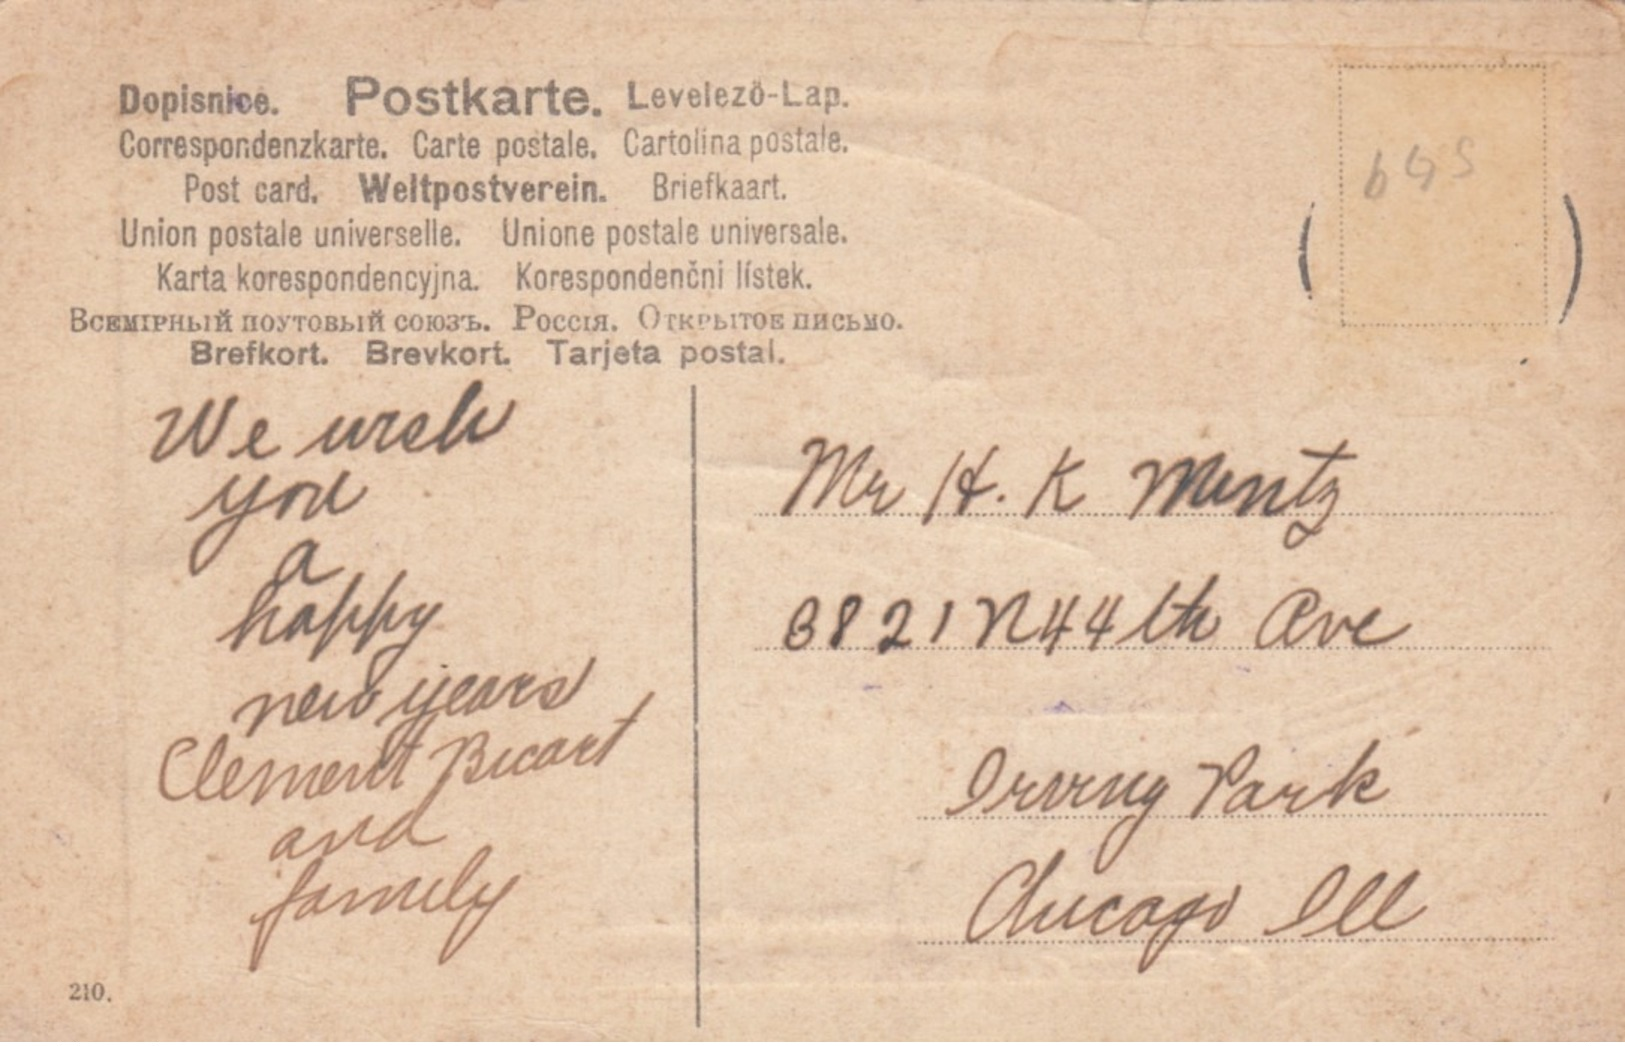 Dopisnice. Postkarte. Levelező-Lap.
Correspondenzkarte. Carte postale. Cartolina postale.
Post card. Weltpostverein. Briefkaart.
Union postale universelle. Unione postale universale.
Karta korespondencyjna. Korespondenčni lístek.
Всемірный поутовый союзъ. Россія. Открытое письмо.
Brefkort. Brevkort. Tarjeta postal.
We wish
you
a
happy
new years
Clement Bicart
and
family
210.
Mr H. K Mentz
3821 N 44th Ave
Irving Park
Chicago Ill